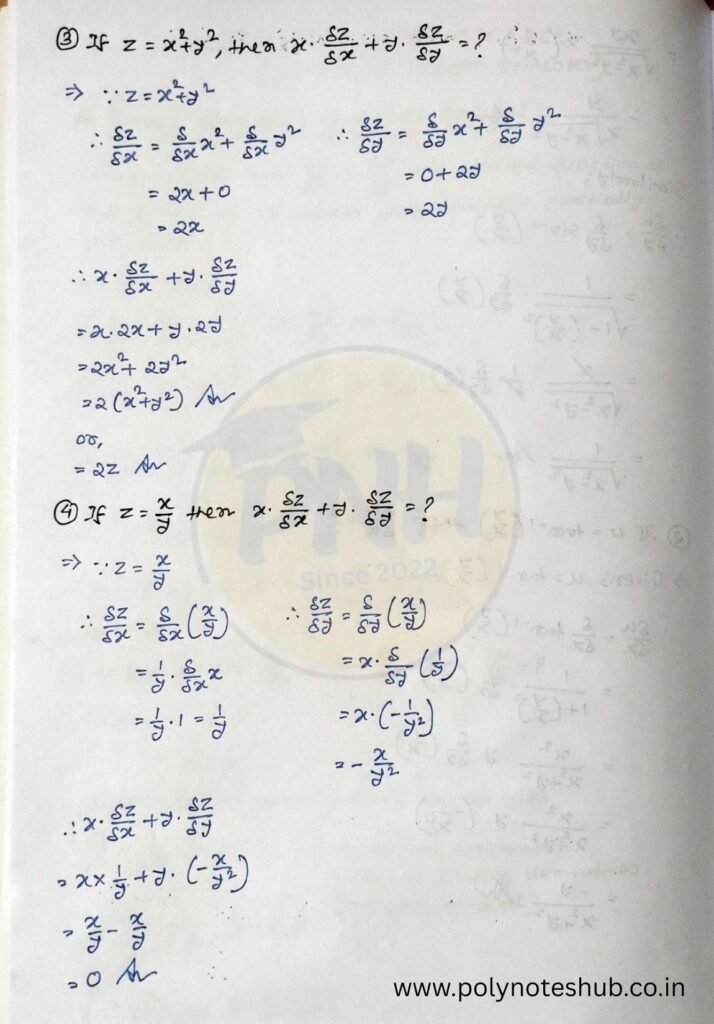 ③ If z = x²+y², then x · δz/δx + y · δz/δy = ?
⇒ ∵ z = x²+y²
∴ δz/δx = δ/δx x² + δ/δx y²
= 2x + 0
= 2x
∴ δz/δy = δ/δy x² + δ/δy y²
= 0 + 2y
= 2y
∴ x · δz/δx + y · δz/δy
= x · 2x + y · 2y
= 2x² + 2y²
= 2 (x²+y²) Ans
or,
= 2z Ans
④ If z = x/y then x · δz/δx + y · δz/δy = ?
⇒ ∵ z = x/y
∴ δz/δx = δ/δx (x/y)
= 1/y · δ/δx x
= 1/y · 1 = 1/y
∴ δz/δy = δ/δy (x/y)
= x · δ/δy (1/y)
= x · (- 1/y²)
= - x/y²
∴ x · δz/δx + y · δz/δy
= x × 1/y + y · (- x/y²)
= x/y - x/y
= 0 Ans
PNH
Since 2022
www.polynoteshub.co.in